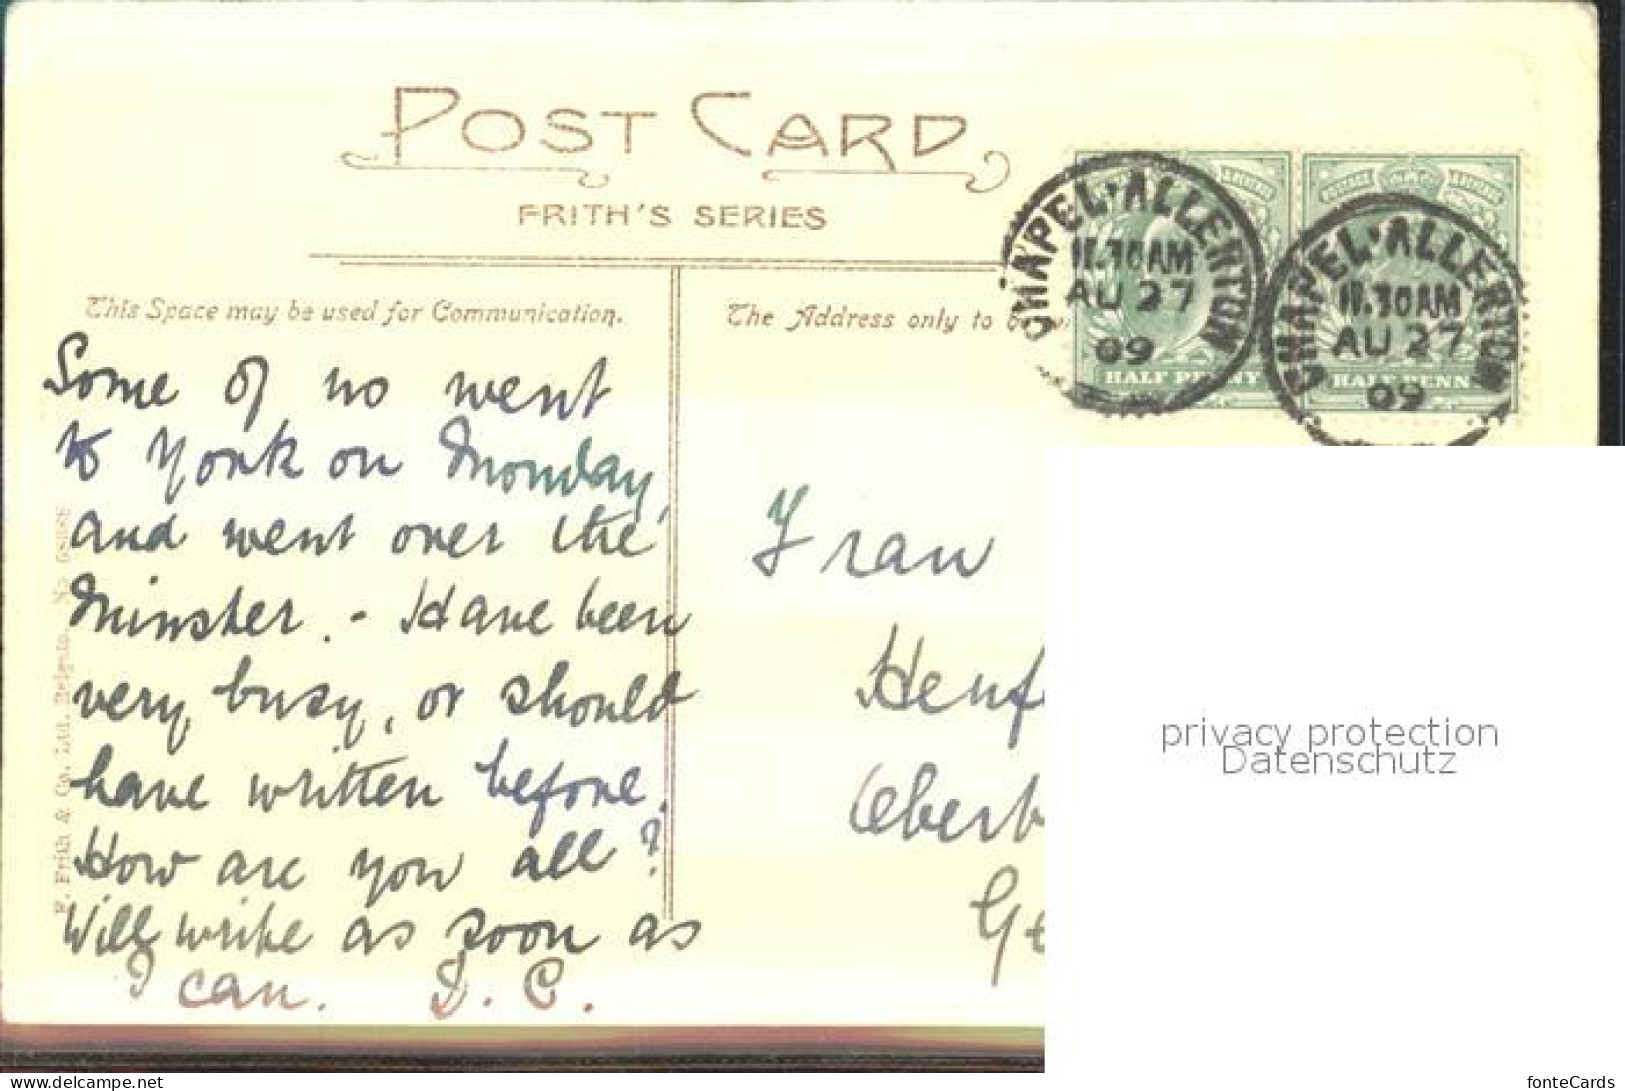 POST CARD
FRITH'S SERIES
This Space may be used for Communication.
The Address only to be
CHAPEL·ALLERTON
11.30AM
AU 27
09
HALF PENNY
CHAPEL·ALLERTON
11.30AM
AU 27
09
HALF PENN
Some of us went
to York on Monday,
and went over the
Minster. - Have been
very busy, or should
have written before.
How are you all?
Will write as soon as
I can. D. C.
Frau
Henf
Oberh
Ge
F. Frith & Co. Ltd. Reigate. No
privacy protection
Datenschutz
www.delcampe.net
fonteCards